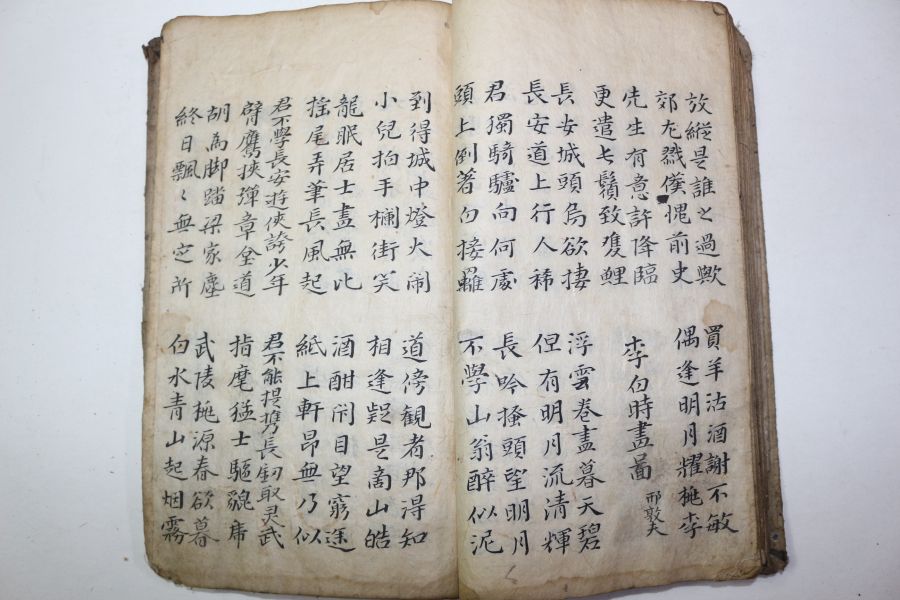 放縱是誰之過歟
郊尨戮僕愧前史
買羊沽酒謝不敏
偶逢明月耀桃李
先生有意許降臨
更遣長鬚致雙鯉
李白時畫圖 邢敦夫
長安城頭烏欲棲
長安道上行人稀
浮雲卷盡暮天碧
但有明月流清輝
君獨騎驢向何處
頭上倒著白接䍦
長吟搔頭望明月
不學山翁醉似泥
到得城中燈火鬧
小兒拍手欄街笑
道傍觀者那得知
相逢疑是商山皓
龍眠居士畫無比
搖尾弄筆長風起
酒酣閉目望窮途
紙上軒昂無乃似
君不學長安遊俠誇少年
臂鷹挾彈章臺道
君不能提携長釖取灵武
指麾猛士驅貔虎
胡為脚踏梁家塵
終日飄〻無定所
武陵桃源春欲暮
白水青山起烟霧